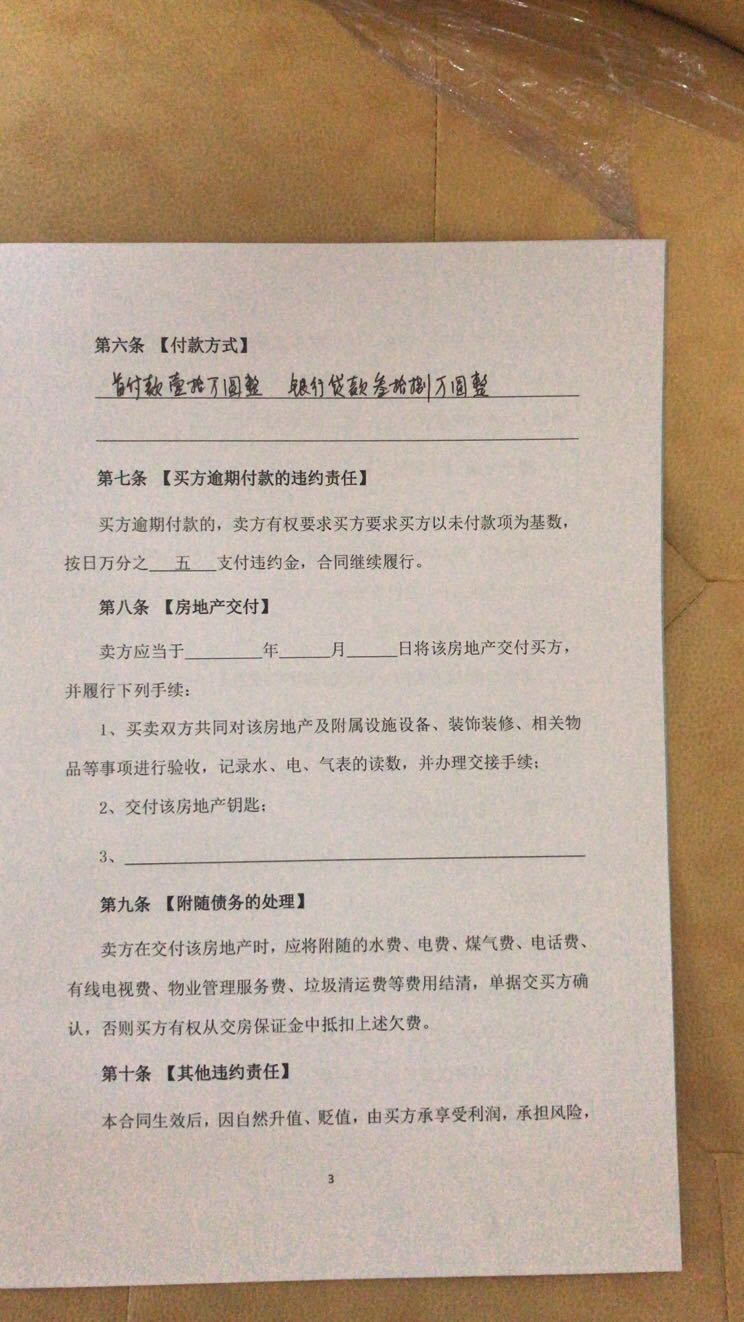 第六条 【付款方式】
首付款壹拾万圆整 银行贷款叁拾捌万圆整
第七条 【买方逾期付款的违约责任】
买方逾期付款的，卖方有权要求买方要求买方以未付款项为基数，
按日万分之___五___支付违约金，合同继续履行。
第八条 【房地产交付】
卖方应当于_________年______月______日将该房地产交付买方，
并履行下列手续：
1、买卖双方共同对该房地产及附属设施设备、装饰装修、相关物
品等事项进行验收，记录水、电、气表的读数，并办理交接手续；
2、交付该房地产钥匙；
3、
第九条 【附随债务的处理】
卖方在交付该房地产时，应将附随的水费、电费、煤气费、电话费、
有线电视费、物业管理服务费、垃圾清运费等费用结清，单据交买方确
认，否则买方有权从交房保证金中抵扣上述欠费。
第十条 【其他违约责任】
本合同生效后，因自然升值、贬值，由买方承享受利润，承担风险，
3